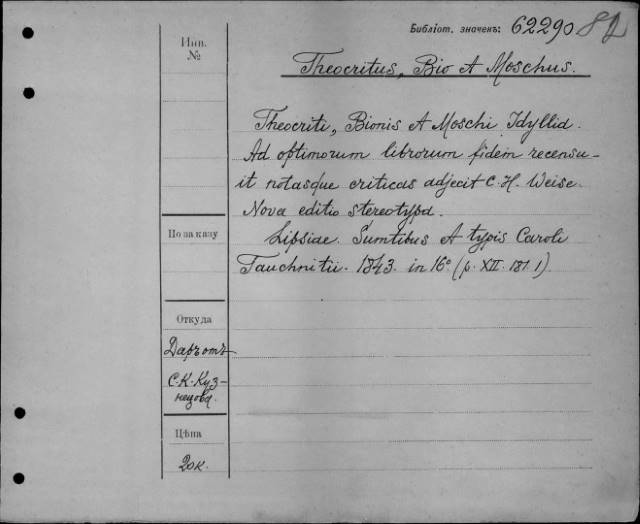 Библіот. значекъ: 62290
Инв. №
Theocritus, Bio et Moschus.
Theocriti, Bionis et Moschi Idyllia.
Ad optimorum librorum fidem recensu-
it notasque criticas adjecit C. H. Weise.
Nova editio stereotypa.
По заказу
Lipsiae. Sumtibus et typis Caroli
Tauchnitii. 1843. in 16º (p. XII. 181. 1).
Откуда
Даръ отъ
С. К. Куз-
нецова.
Цѣна
20 к.